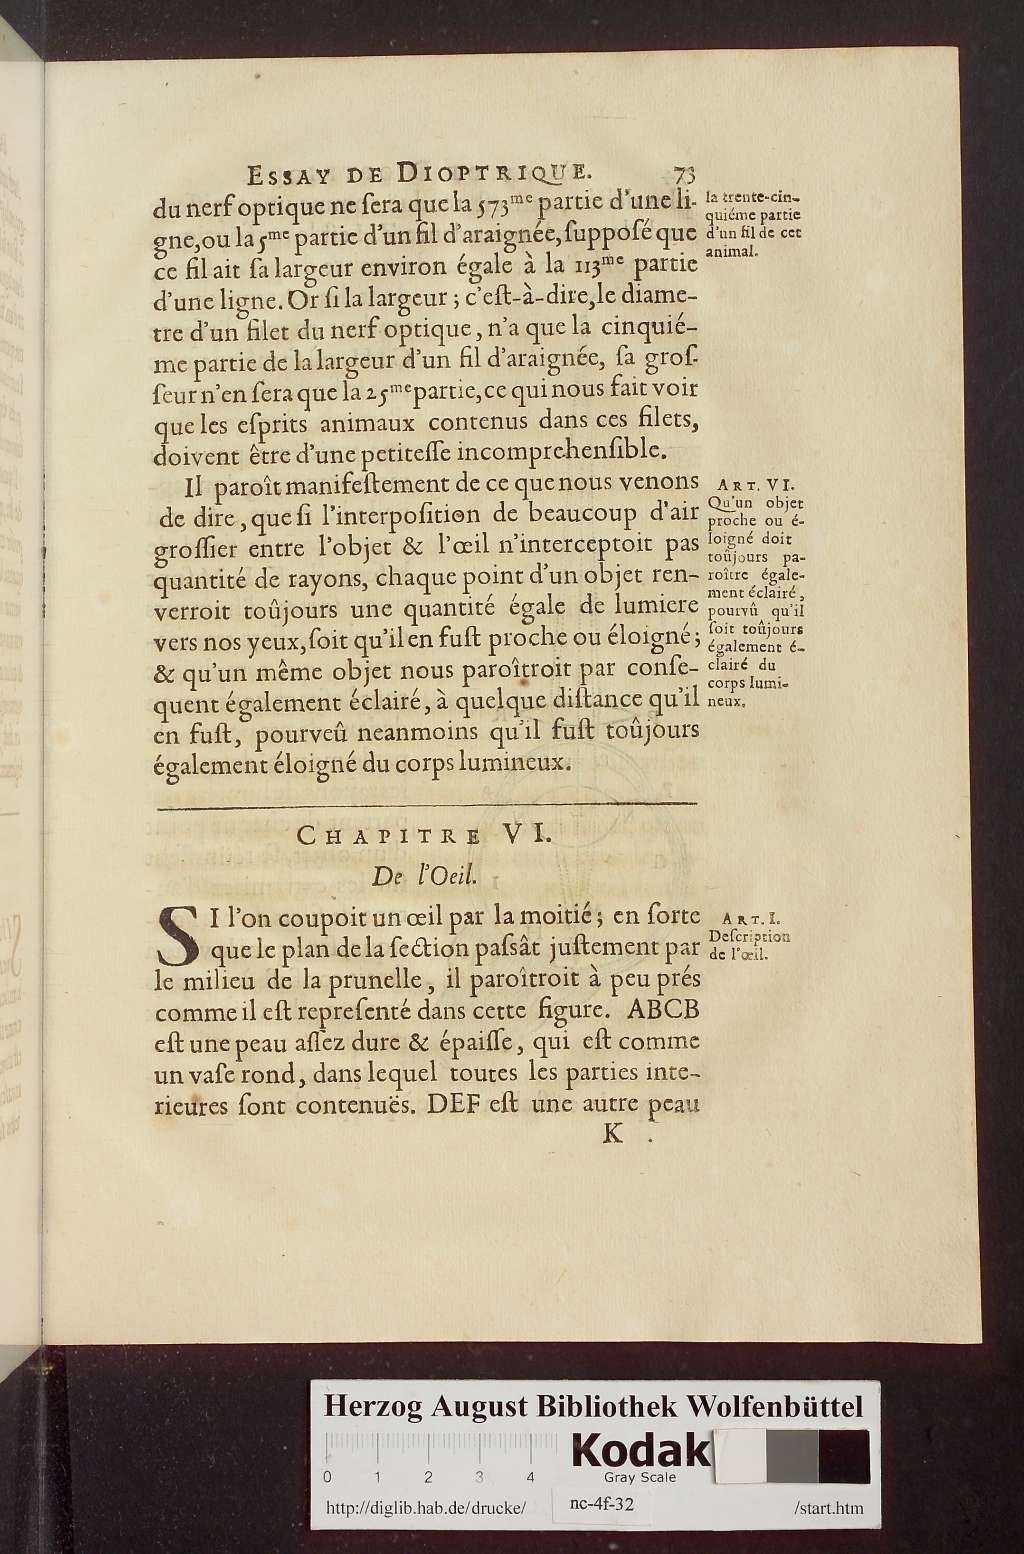 ESSAY DE DIOPTRIQUE. 73
du nerf optique ne ſera que la 573me partie d'une li-
gne, ou la 5me partie d'un fil d'araignée, ſuppoſé que
ce fil ait ſa largeur environ égale à la 113me partie
d'une ligne. Or ſi la largeur ; c'eſt-à-dire, le diame-
tre d'un filet du nerf optique, n'a que la cinquié-
me partie de la largeur d'un fil d'araignée, ſa groſ-
ſeur n'en ſera que la 25me partie, ce qui nous fait voir
que les eſprits animaux contenus dans ces filets,
doivent être d'une petiteſſe incomprehenſible.
la trente-cin-
quiéme partie
d'un fil de cet
animal.
Il paroît manifeſtement de ce que nous venons
de dire, que ſi l'interpoſition de beaucoup d'air
groſſier entre l'objet & l'œil n'interceptoit pas
quantité de rayons, chaque point d'un objet ren-
verroit toûjours une quantité égale de lumiere
vers nos yeux, ſoit qu'il en fuſt proche ou éloigné ;
& qu'un même objet nous paroîtroit par conſe-
quent également éclairé, à quelque diſtance qu'il
en fuſt, pourveû neanmoins qu'il fuſt toûjours
également éloigné du corps lumineux.
ART. VI.
Qu'un objet
proche ou é-
loigné doit
toûjours pa-
roître égale-
ment éclairé,
pourvû qu'il
ſoit toûjours
également é-
clairé du
corps lumi-
neux.
CHAPITRE VI.
De l'Oeil.
SI l'on coupoit un œil par la moitié ; en ſorte
que le plan de la ſection paſsât juſtement par
le milieu de la prunelle, il paroîtroit à peu prés
comme il eſt repreſenté dans cette figure. ABCB
eſt une peau aſſez dure & épaiſſe, qui eſt comme
un vaſe rond, dans lequel toutes les parties inte-
rieures ſont contenuës. DEF eſt une autre peau
ART. I.
Deſcription
de l'œil.
K
Herzog August Bibliothek Wolfenbüttel
0 1 2 3 4
Kodak
Gray Scale
http://diglib.hab.de/drucke/ nc-4f-32 /start.htm